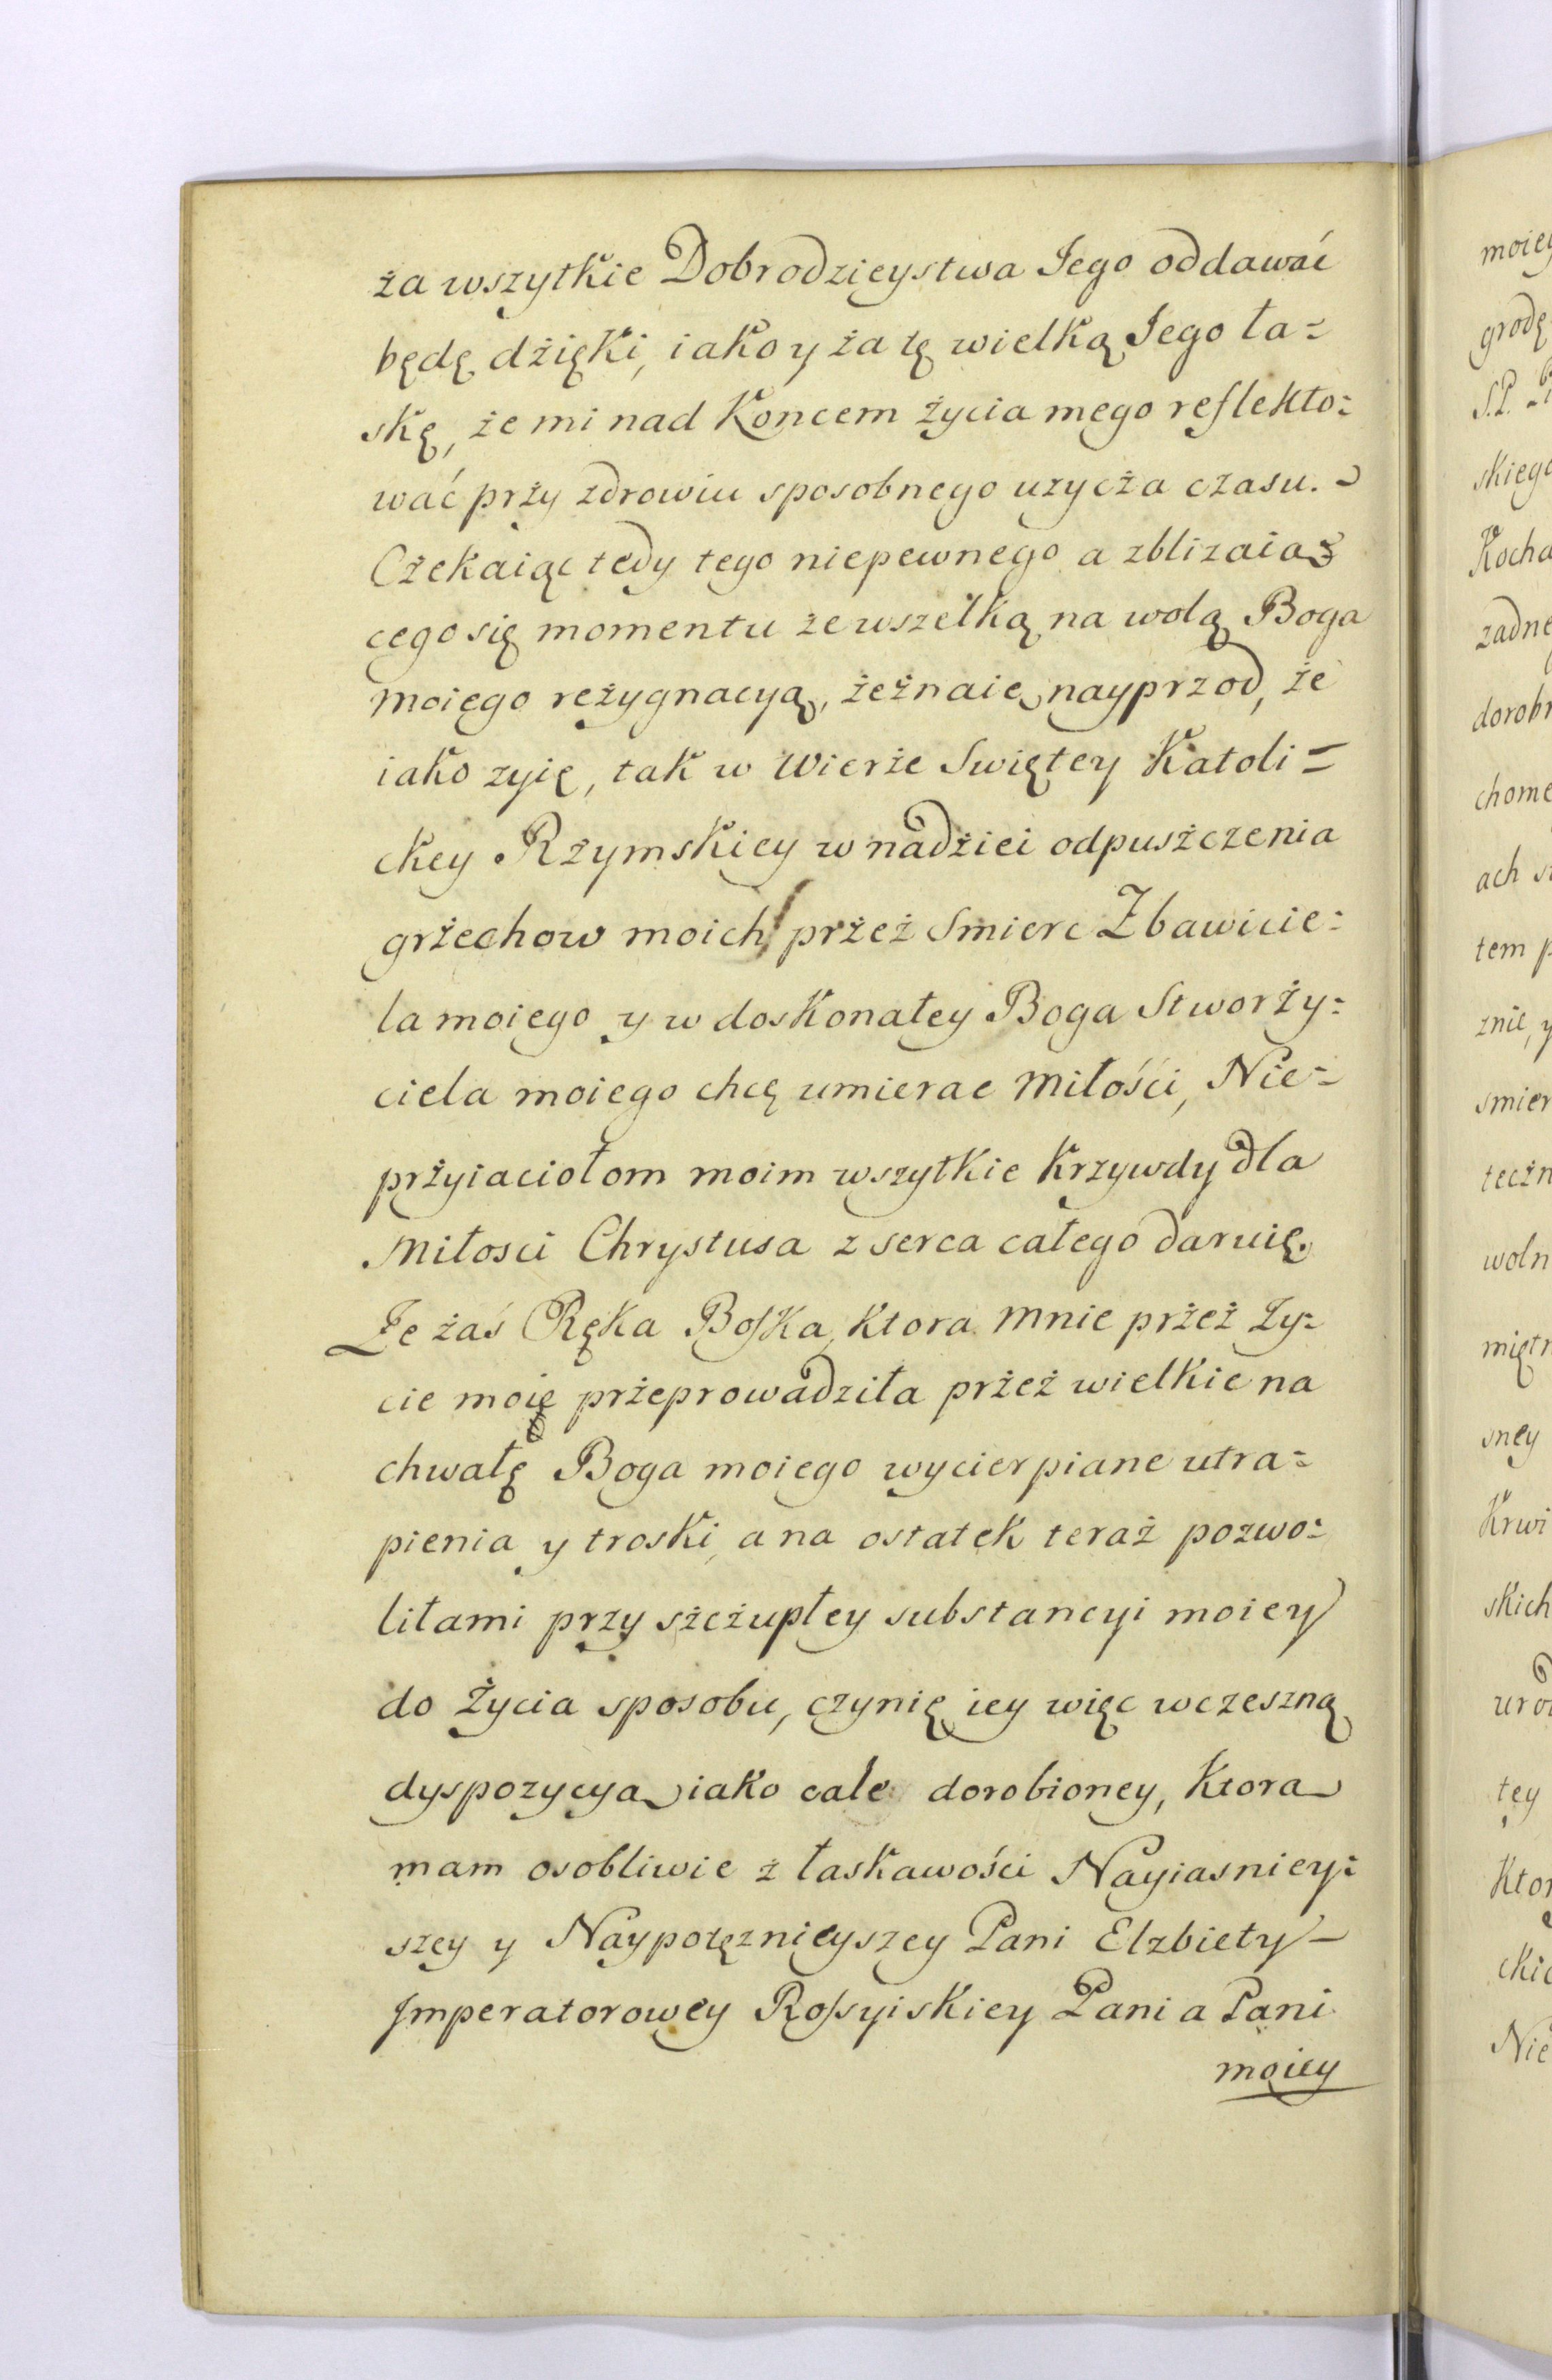 ża wszytkie Dobrodzieystwa Jego oddawać
będę dżięki, iako y ża tę wielką Jego ła=
skę, że mi nad Koncem życia mego reflekto=
wać prży zdrowiu sposobnego uzycża czasu.
Cżekaiąc tedy tego niepewnego a zblizaią=
cego się momentu że wszelką na wolą Boga
moiego reżygnacyą, żeżnaię nayprzod, że
iako zyię, tak w Wierże Swiętey Katoli=
ckey Rzymskiey w nadżiei odpuszczenia
grżechow moich prżeż Smierc Zbawicie=
la moiego y w doskonałey Boga Stworży=
ciela moiego chcę umierac Miłości, Nie=
prżyiaciołom moim wszytkie Krzywdy dla
Miłosci Chrystusa z serca całego daruię.
Że żaś Ręka Boska, Ktora mnie prżeż Zy=
cie moię prżeprowadziła prżeż wielkie na
chwałę Boga moiego wycierpiane utra=
pienia y troski, a na ostatek teraż pozwo=
liłami przy szcżupłey substancyi moiey
do Życia sposobu, czynię iey więc wczeszną
dyspozycyą iako cale dorobioney, Ktorą
mam osobliwie ż łaskawości Nayiasniey=
szey y Naypotęznieyszey Pani Elzbiety
Jmperatorowey Rossyiskiey Pani a Pani
moiey
moiey
grodę
S.P.
skiego
Kocha
zadne
dorobn
chome
ach
tem p
znie, y
smier
teczn
woln
miętn
sney
Krwi
skich
uro
tey
Ktor
ckie
Nie